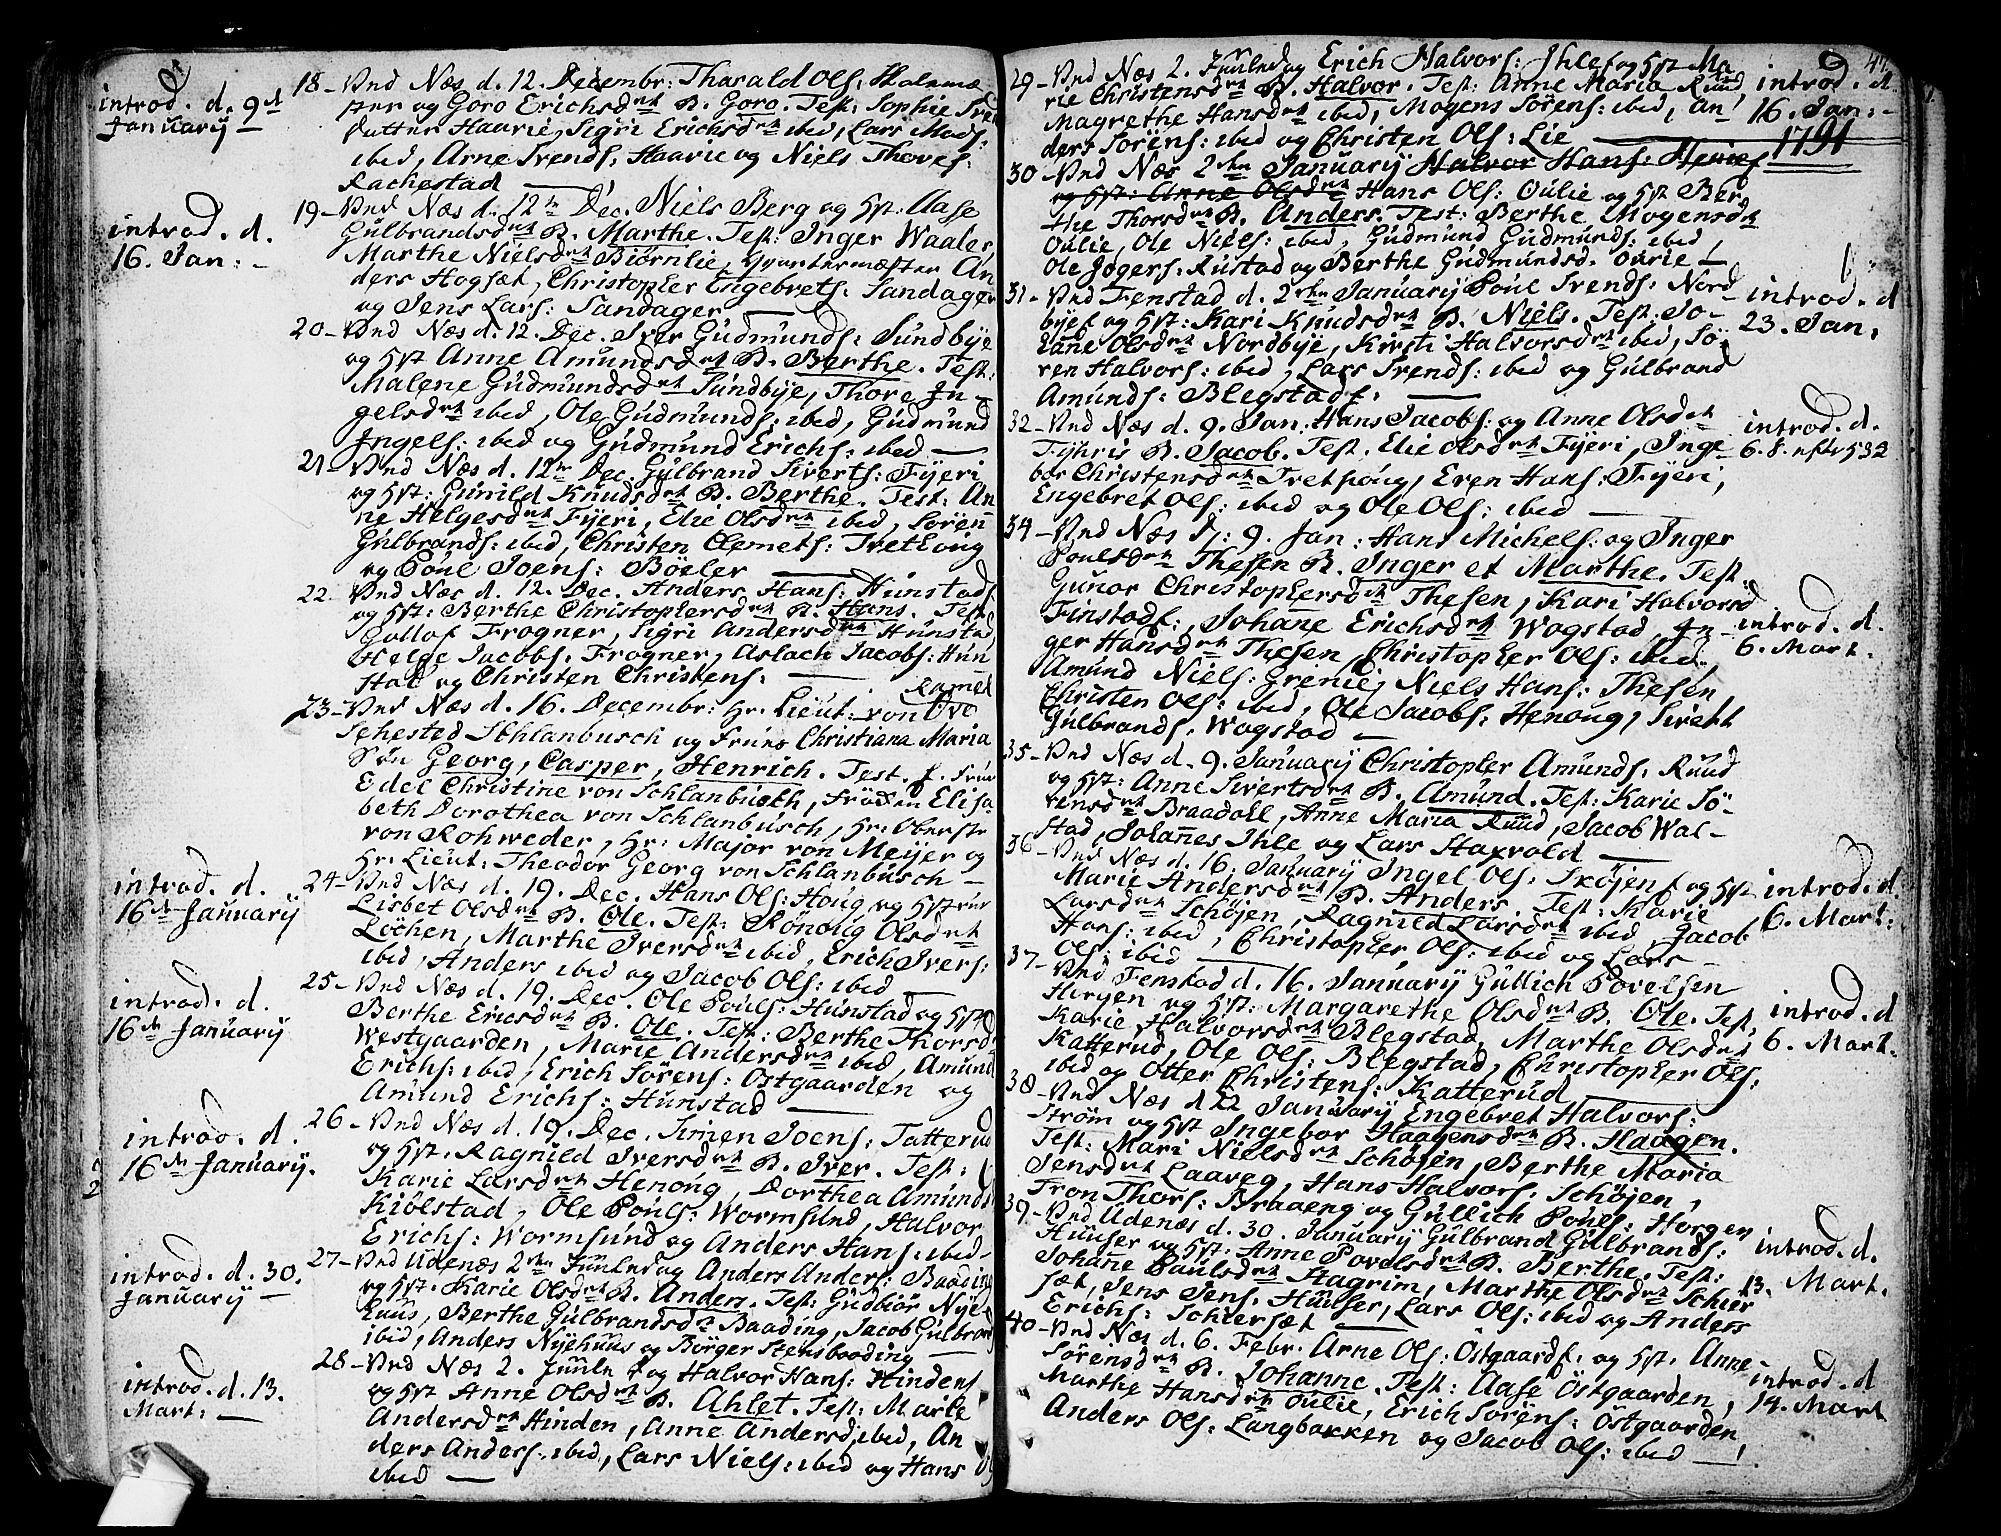 introd. d. 9d
January
18 - Und Næs d. 12. Decembr: Tharald Ols: Holmæ
ster og Goro Erichsdtr B. Goro. Test: Sophie Svend
datter Haarie, Sigri Erichsdtr ibid, Lars Mads:
ibid, Arne Svends: Haarie og Niels Thoves:
Rachestad
introd. d.
16. Jan:
19 - Und Næs d. 12te Dec. Niels Berg og Hst: Aase
Gulbrandsdtr B. Marthe. Test: Inger Waaler,
Marthe Nielsdtr Biørnlie, Qvartermester An
ders Hogsæt, Christopher Engebrets: Sandager
og Jens Lars: Sandager
20 - Und Næs d. 12. Dec. Iver Gudmunds: Sundbye
og Hst Anne Amundsdtr B. Berthe. Test:
Malene Gudmundsdtr Sundbye, Thore In-
gelsdtr ibid, Ole Gudmunds: ibid, Gudmund
Ingels: ibid og Gudmund Erichs: ibid
21 - Und Næs d. 12te Dec. Gulbrand Siverts: Fyeri
og Hst: Gunild Knudsdtr B. Berthe. Test: An
ne Helgesdtr Fyeri, Elie Olsdtr ibid, Søren
Gulbrands: ibid, Christen Clemets: Tvethoug
og Poul Joens: Bøeler
22 - Und Næs d. 12. Dec. Anders Hans: Hunstad
og Hst: Berthe Christophersdtr B. Hans. Test
Frogner, Sigri Andersdtr Hunstad,
Helge Jacobs: Frogner, Aslach Jacobs: Hun
stad og Christen Christens:
Ramel
23 - Und Næs d. 16. Decembr: Hr. Lieut: von Ove
Sehested Schlanbusch og Frues Christiana Maria
Søn Georg, Casper, Henrich. Test. Frue
Edel Christine von Schlanbusch, Frøken Elisa
beth Dorothea von Schlanbusch, Hr: Oberste
von Rohweder, Hr: Major von Meijer og
Hr: Lieut: Theodor Georg von Schlanbusch
introd. d.
16de January
24 - Und Næs d. 19. Dec. Hans Ols: Houg og Hstrue
Lisbet Olsdtr B. Ole. Test: Rønoug Olsdtr
Løchen, Marthe Iversdtr ibid, Erich Ivers:
ibid, Anders ibid og Jacob Ols: ibid
introd. d.
16de January
25 - Und Næs d. 19. Dec. Ole Pouls: Hunstad og Hst
Berthe Ericsdtr B. Ole. Test: Berthe Thorsd
Westgaarden, Marie Andersdtr ibid, Amund
Erichs: ibid, Erich Sørens: Østgaarden og
Amund Erichs: Hunstad
introd. d.
16de January.
26 - Und Næs d. 19. Dec. Simen Joens: Tatterud
og Hst. Ragnild Iversdtr B. Iver. Test:
Karie Larsdtr Henoug, Dorthea Amundsd
Kiølstad, Ole Pouls: Wormsund, Halvor
Erichs: Wormsund og Anders Hans: ibid
introd. d. 30.
January
27 - Und Udenæs 2den Juuledag Anders Anders: Baading
og Hst. Karie Olsdtr B. Anders. Test: Gudbiør Nye
huus, Berthe Gulbrandsdtr Baading, Jacob Gulbrand
ibid, Anders Nyehuus og Børger Stensbaading
introd. d. 13.
Mart:
28 - Und Næs 2. Juule dag Halvor Hans: Hinden
og Hst Anne Olsdtr B. Ahlet. Test: Marte
Andersdtr Hinden, Anne Andersd ibid, An
ders Anders: ibid, Lars Niels: ibid og Hans
ibid
29 - Und Næs 2. Juuledag Erich Halvors: Ihle og Hst Ma
rie Christensdtr B. Halvor. Test: Anne Maria Ruud
Magrethe Hansdtr ibid, Mogens Sørens: ibid, An
ders Sørens: ibid og Christen Ols: Lie
introd. d.
16. Jan:
1791
30 - Und Næs 2den January Halvor Hans: Henie
og Hst: Anne Olsdtr Hans Ols: Oulie og Hst Ber
the Thorsdtr B. Anders. Test: Berthe Mogensdtr
Oulie, Ole Niels: ibid, Gudmund Gudmunds: ibid
Ole Jogers. Rustad og Berthe Gudmundsd. Oulie
31 - Und Fenstad d. 2den January Poul Svends: Nord
bye og Hst: Kari Knudsdtr B. Niels. Test: Jo-
hane Olsdtr Nordbye, Kirsti Halvorsdtr ibid, Sø-
ren Halvors: ibid, Lars Svends: ibid og Gulbrand
Amunds: Blegstad
introd. d
23. Jan:
32 - Und Næs d. 9. Jan: Hans Jacobs: og Anne Olsdtr
Fyhris B. Jacob. Test. Elie Olsdtr Fyeri, Inge
bor Christensdtr Tvethoug, Even Hans: Fyeri,
Engebret Ols: ibid og Ole Ols: ibid
introd. d.
6. S. efter 532
34 - Und Næs D: 9. Jan: Hans Michels: og Inger
Poulsdtr Thesen B. Inger et Marthe. Test:
Gunor Christophersdtr Thesen, Kari Halvorsd
Finstad, Johane Erichsdtr Wogstad, In-
ger Hansdtr Thesen, Christopher Ols: ibid,
Amund Niels: Grenie, Niels Hans: Thesen,
Christen Ols: ibid, Ole Jacobs: Henoug, Sivert
Gulbrands. Wogstad
introd. d.
6. Mart.
35 - Und Næs d. 9. January Christopher Amunds: Ruud
og Hst: Anne Sivertsdtr B. Amund. Test: Karie Sø-
rensdtr Braadoll, Anne Maria Ruud, Jacob Wal-
stad, Johannes Ihle og Lars Haxvold
36 - Und Næs d. 16. January Ingel Ols: Skøjen og Hst
Marie Andersdtr B. Anders. Test: Karie
Larsdtr Schøjen, Ragnild Larsdtr ibid Jacob
Hans: ibid, Christopher Ols: ibid og Lars
Ols: ibid
introd. d.
6. Mart:
37 - Und Fenstad d. 16. January Gullich Povelsen
Horgen og Hst: Margarethe Olsdtr B. Ole. Test.
Karie Halvorsdtr Blegstad, Marthe Olsdtr
Katterud, Ole Ols: Blegstad, Christopher Ols:
ibid og Otter Christens: Katterud
introd. d
6. Mart.
38 - Und Næs d 22 January Engebret Halvors:
Strøm og Hst Ingebor Haagensdtr B. Haagen.
Test: Mari Nielsdtr Schøjen, Berthe Maria
Jensdtr Laaveg, Hans Halvors: Schøjen,
Fron Thors: Braaeng og Gullich Pouls: Horgen
39 - Und Udenæs d. 30. January Gulbrand Gulbrands:
Huuser og Hst: Anne Povelsdtr B. Berthe. Test:
Johane Paulsdtr Hagrim, Marthe Olsdtr Schier
sæt, Jens Jens: Huuser, Lars Ols: ibid og Anders
Erichs: Schiersæt
introd. d.
13. Mart.
40 - Und Næs d. 6. Febr. Arne Ols: Østgaard og Hst. Anne
Sørensdtr B. Johanne. Test: Aase Østgaarden,
Marthe Hansdtr Oulie, Erich Sørens: Østgaarden
Anders Ols: Langbakken og Jacob Ols: ibid
introd. d
14. Mart